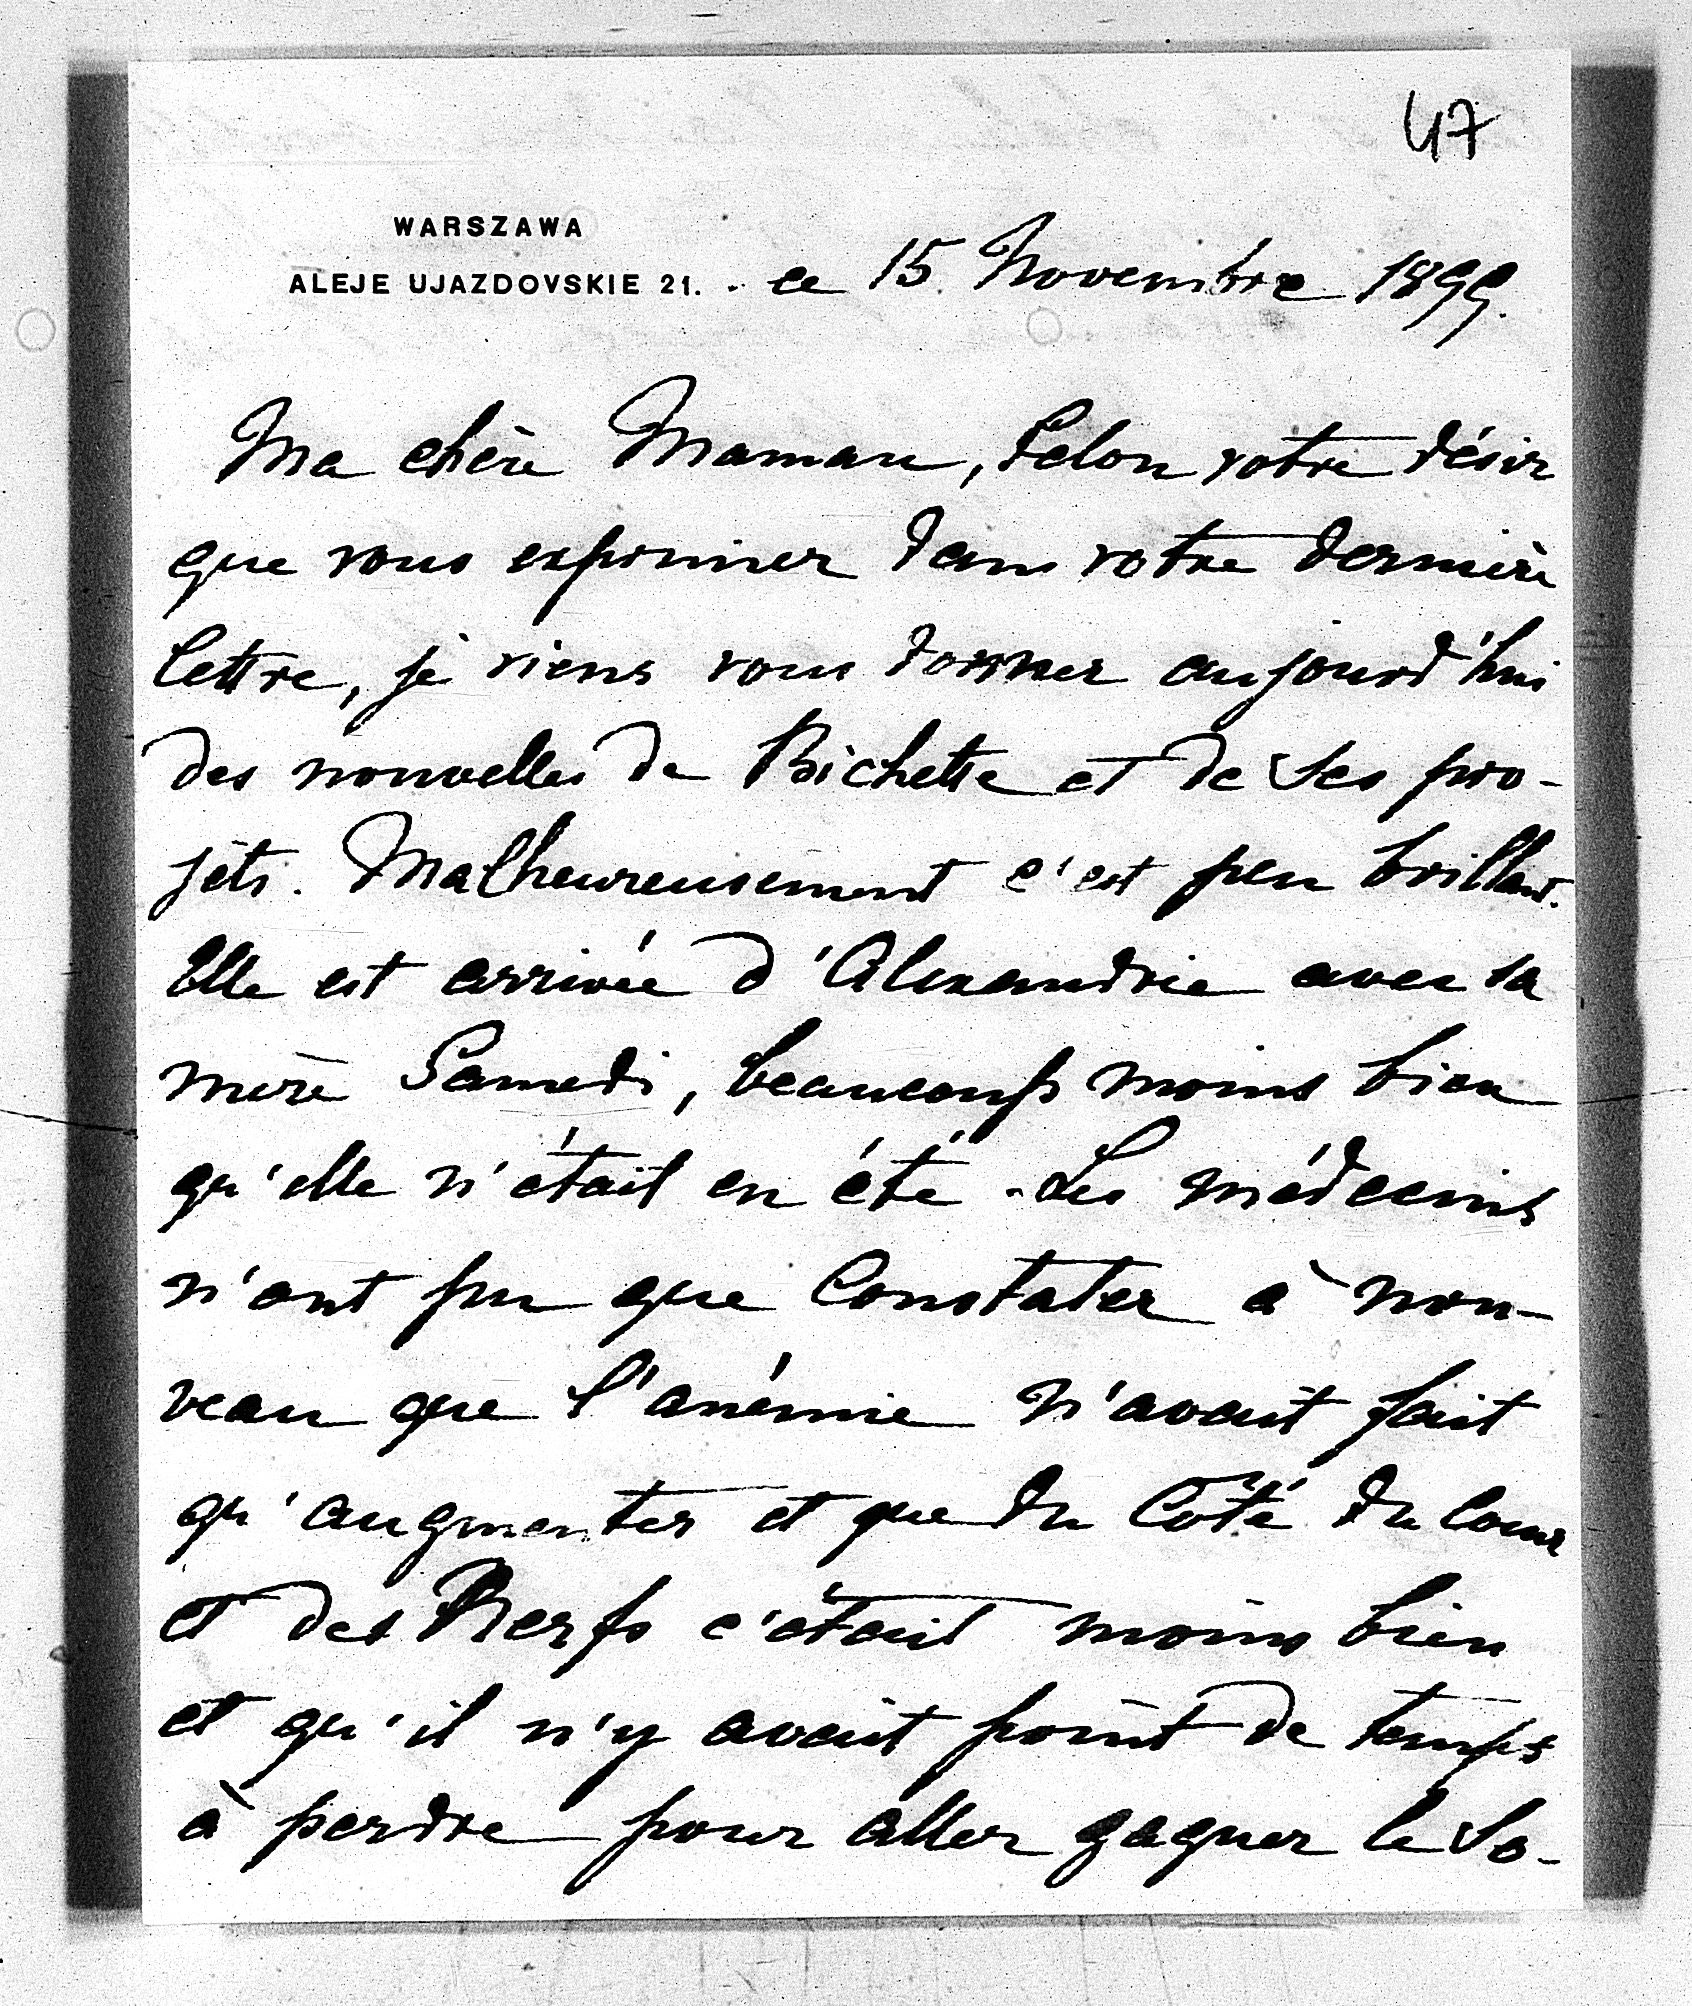 47
WARSZAWA
ALEJE UJAZDOVSKIE 21. - ce 15 Novembre 1899.
Ma chère Maman, Selon votre désir
que vous exprimer dans votre dernière
lettre, je viens vous donner aujourd'hui
des nouvelles de Bichette et de ses pro-
jéts. Malheureusement c'est peu brillant.
Elle est arrivée d'Alexandrie avec sa
mère Samedi, beaucoup moins bien
qu'elle n'était en été. Les médecins
n'ont pu que constater à nou-
veau que l'anémie n'avait fait
qu'augmenter et que du côté du coeur
et des Nerfs c'était moins bien
et qu'il n'y avait point de temps
à perdre pour aller gagner le so-